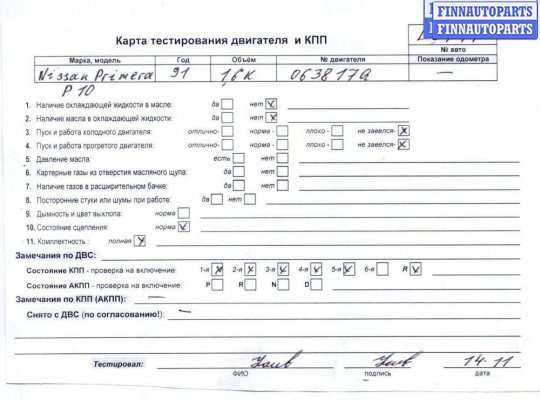 FINNAUTOPARTS
FINNAUTOPARTS
Карта тестирования двигателя и КПП
№ авто
Марка, модель Год Объём № двигателя Показание одометра
Nissan Primera 91 1,6 К 063817Q —
P 10
1. Наличие охлаждающей жидкости в масле: да нет
2. Наличие масла в охлаждающей жидкости: да нет
3. Пуск и работа холодного двигателя: отлично- норма - плохо - не завелся-
4. Пуск и работа прогретого двигателя: отлично- норма - плохо - не завелся-
5. Давление масла: есть нет
6. Картерные газы из отверстия масляного щупа: да нет
7. Наличие газов в расширительном бачке: да нет
8. Посторонние стуки или шумы при работе: да нет
9. Дымность и цвет выхлопа: норма
10. Состояние сцепления: норма
11. Комплектность : полная
Замечания по ДВС:
Состояние КПП - проверка на включение: 1-я 2-я 3-я 4-я 5-я 6-я R
Состояние АКПП - проверка на включение: P R N D
Замечания по КПП (АКПП): —
Снято с ДВС (по согласованию!): —
Тестировал: 14.11
ФИО подпись дата